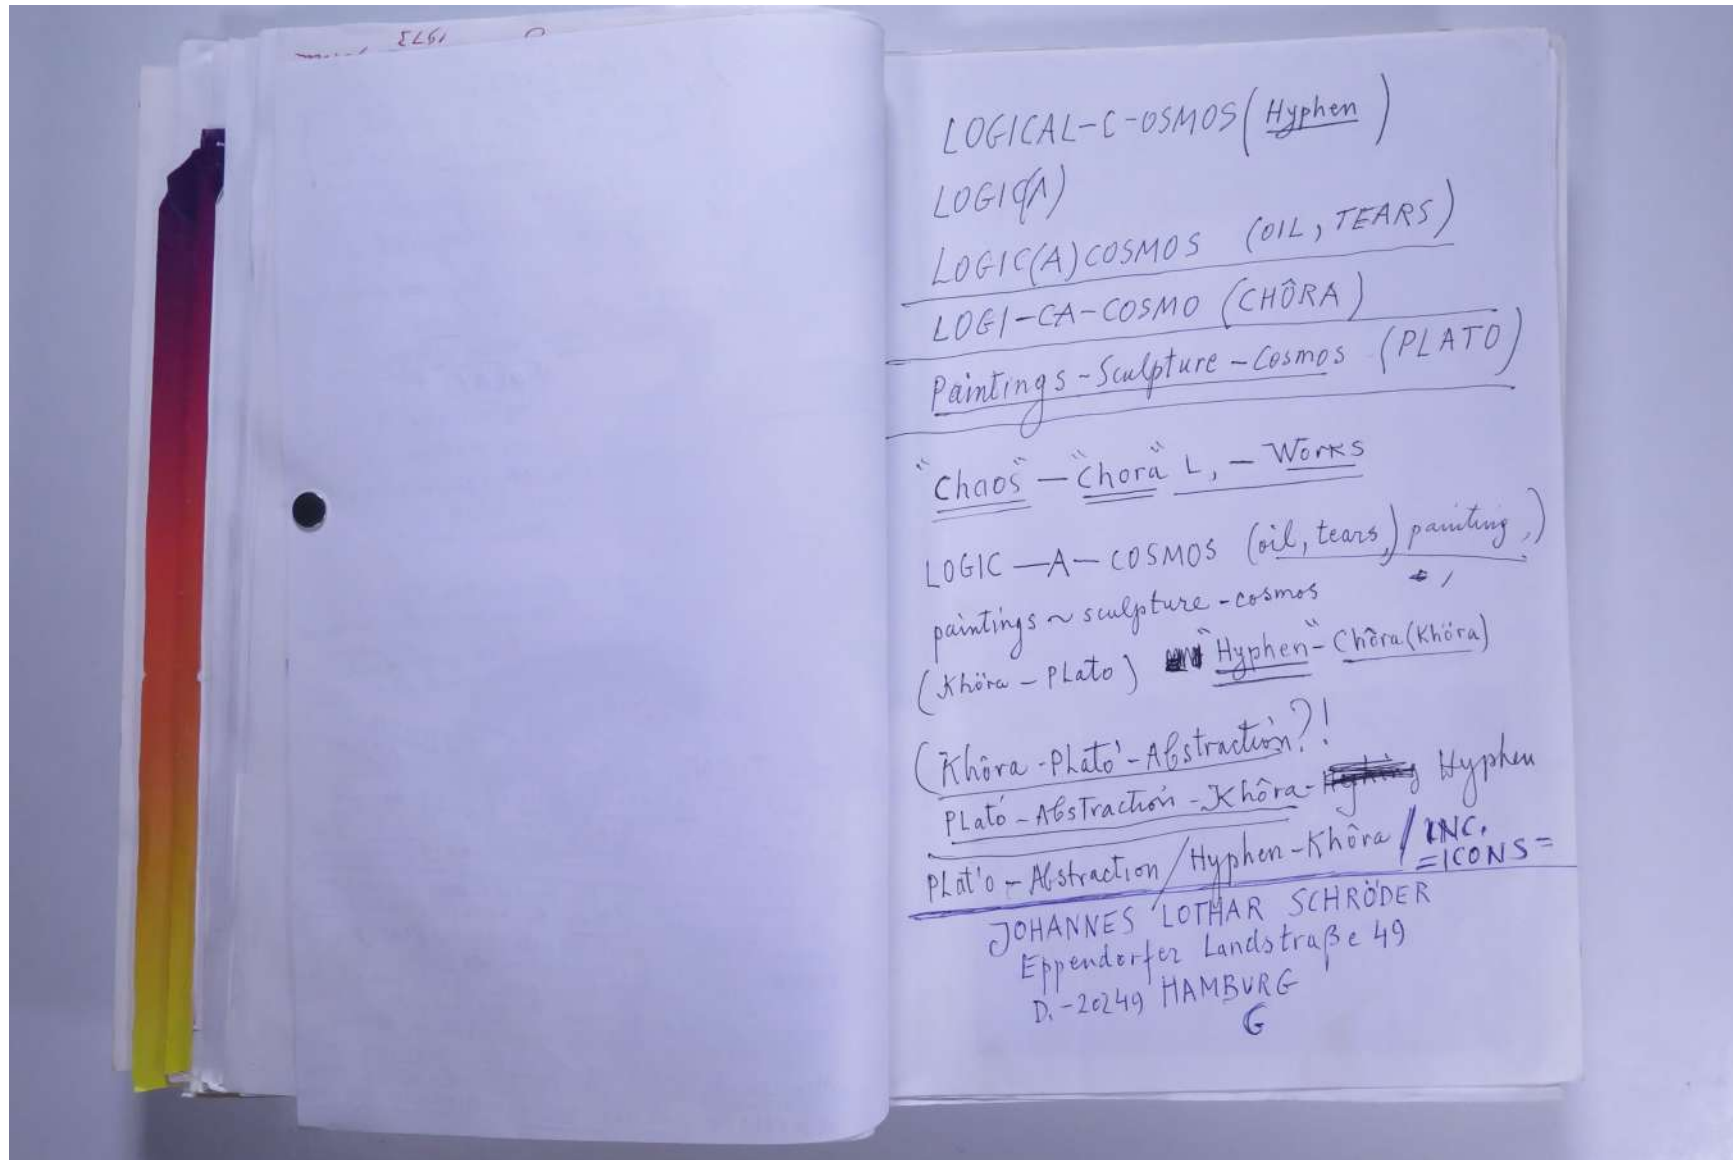 1973
LOGICAL-C-OSMOS (Hyphen)
LOGIC(A)
LOGIC(A)COSMOS (OIL, TEARS)
LOGI-CA-COSMO (CHÔRA)
Paintings-Sculpture-Cosmos (PLATO)
"Chaos" - "Chora" L, - Works
LOGIC—A—COSMOS (oil, tears,) painting,)
paintings ~ sculpture - cosmos
(Khôra - PLato) "Hyphen" - Chôra (Khôra)
(Khôra - PLato' - Abstraction?!
PLato' - Abstraction - Khôra - Hyphen
PLat'o - Abstraction / Hyphen - Khôra / INC.
=ICONS=
JOHANNES LOTHAR SCHRÖDER
Eppendorfer Landstraße 49
D.-20249 HAMBURG
G